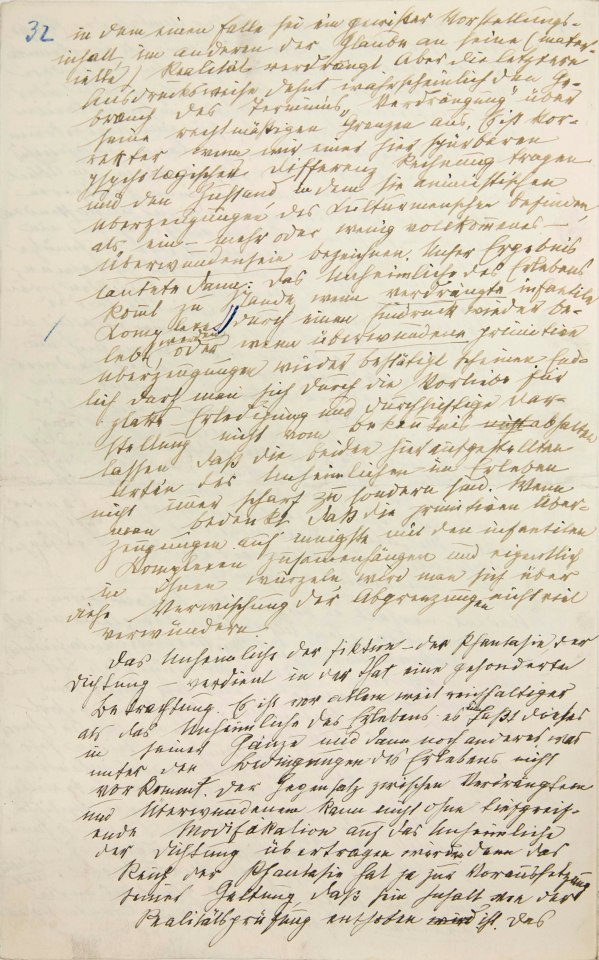 32
in dem einen Falle sei ein gewisser Vorstellungs-
inhalt, im anderen der Glaube an seine (mater-
ielle) Realität verdrängt. Aber die letztere
Ausdrucksweise dehnt wahrscheinlich den Ge-
brauch des Terminus „Verdrängung" über
seine rechtmäßigen Grenzen aus. Es ist kor-
rekter wenn wir einer hier spürbaren
psychologischen Differenz Rechnung tragen
und den Zustand, in dem sie animistischen
Überzeugungen des Kulturmenschen befinden,
als ein – mehr oder wenig vollkommenes –
Überwundensein bezeichnen. Unser Ergebnis
lautete dann: Das Unheimliche des Erlebens
komt zu Stande, wenn verdrängte infantile
Komplexe durch einen Eindruck wieder be-
lebt werden, oder wenn überwundene primitive
Überzeugungen wieder bestätigt scheinen. End-
lich darf man sich durch die Vorliebe für
glatte Erledigung und durchsichtige Dar-
stellung nicht vom Bekentnis nicht abhalten
lassen, daß die beiden hier aufgestellten
Arten des Unheimlichen im Erleben
nicht imer scharf zu sondern sind. Wenn
man bedenkt, daß die primitiven Über-
zeugungen aufs innigste mit den infantilen
Komplexen zusamenhängen und eigentlich
in ihnen wurzeln, wird man sich über
diese Verwischung der Abgrenzungen nicht viel
verwundern.
Das Unheimliche der Fiktion – der Phantasie der
Dichtung – verdient in der Tat eine gesonderte
Betrachtung. Es ist vor allem weit reichhaltiger
als das Unheimliche des Erlebens es umfaßt dieses
in seiner Gänze und dann noch anderes was
unter den Bedingungen des Erlebens nicht
vorkommt. Der Gegensatz zwischen Verdrängtem
und Überwundenem kann nicht ohne tiefgreif-
ende Modifikation auf das Unheimliche
der Dichtung übertragen werden denn das
Reich der Phantasie hat ja zur Voraussetzung
seiner Geltung, daß sein Inhalt von der
Realitätsprüfung enthoben wird ist. Das